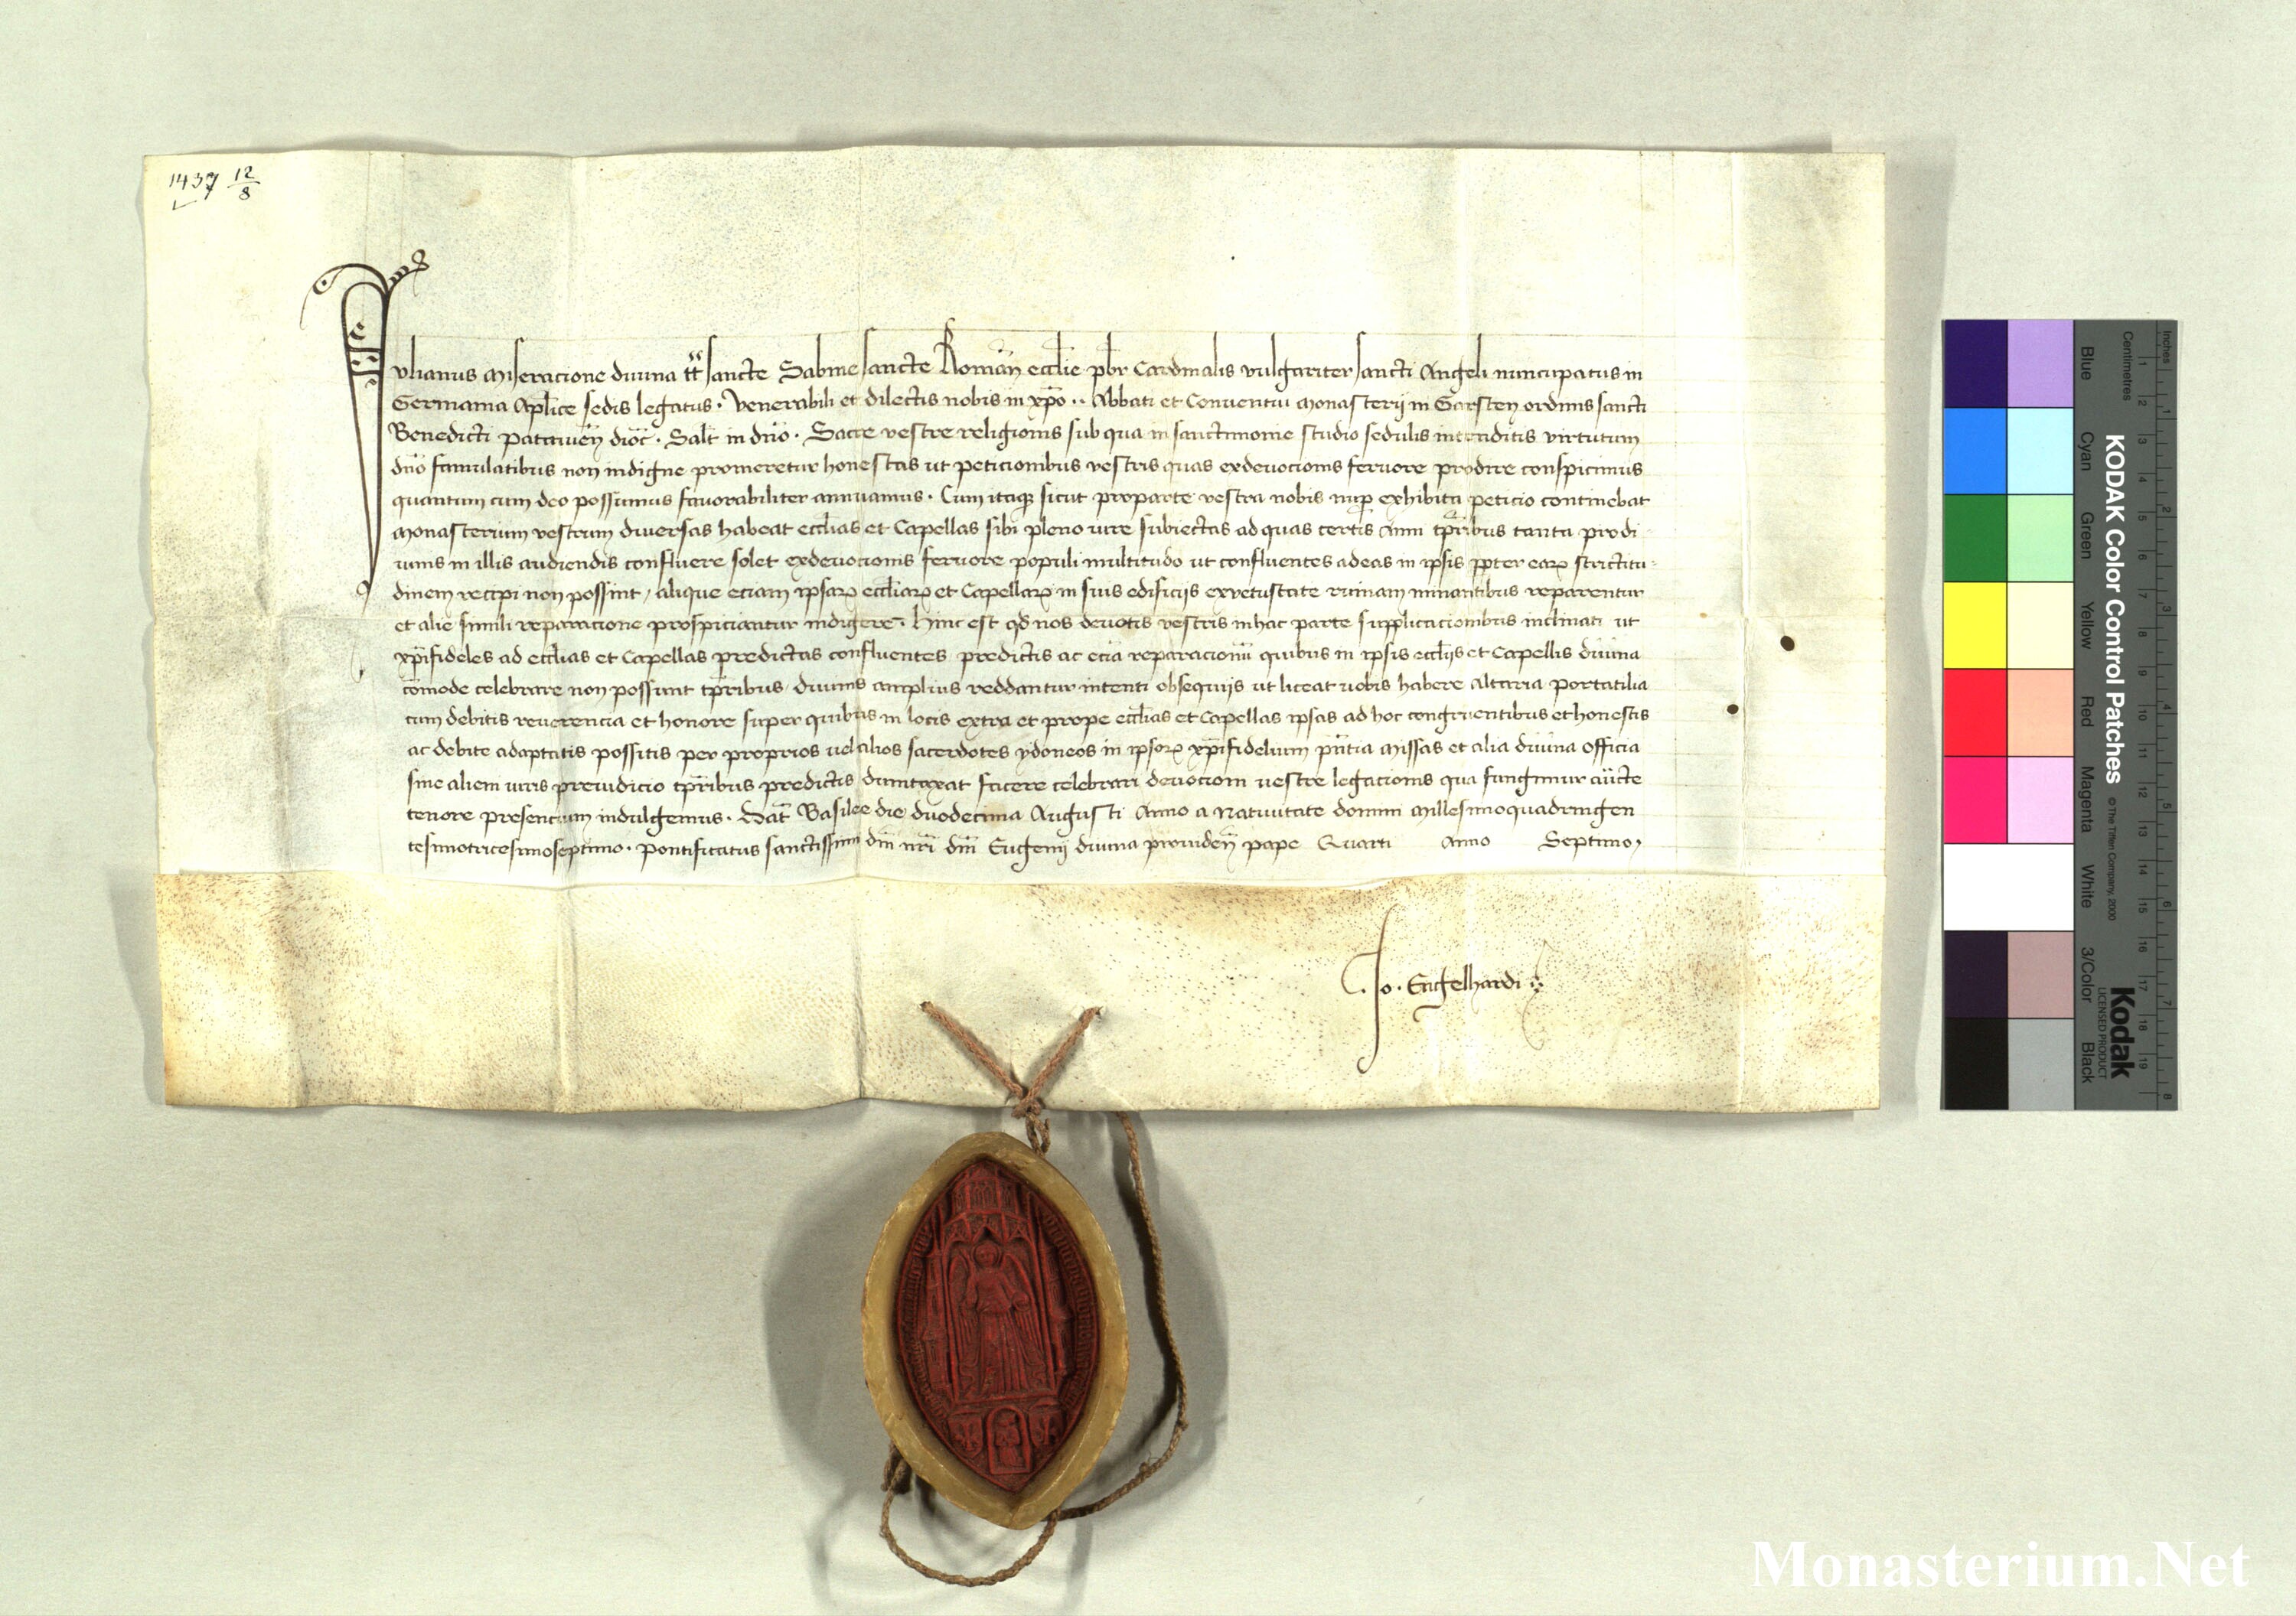 1437 12/8
Iulianus miseracione divina tt̄ sancte Sabine sancte Roman̄ eccl̄ie pb̄r Cardinalis vulgariter sancti Angeli nuncupatus in
Germania Apl̄ice sedis legatus. Venerabili et dilectis nobis in xp̄o .. Abbati et Conuentui monasterij in Garsten ordinis sancti
Benedicti patauien̄ dioc̄. Salt̄ in dn̄o. Sacre vestre religionis sub qua in sanctimonie studio sedulis intenditis virtutum
dn̄o famulatibus non indigne promeretur honestas ut peticionibus vestris quas exdeuocionis feruore prodire conspicimus
quantum cum deo possumus fauorabiliter annuamus. Cum itaqꝫ sicut proparte vestra nobis nup̄ exhibita peticio continebat
monasterium vestrum diversas habeat eccl̄ias et Capellas sibi pleno iure subiectas ad quas certis Anni tp̄ribus tanta pro di
uinis in illis audiendis confluere solet exdeuocionis feruore populi multitudo ut confluentes adeas in ipsis pp̄ter eaꝝ strictitu-
dinem recipi non possint, alique eciam ipsaꝝ eccl̄iaꝝ et Capellaꝝ in suis edificijs exvetustate ruinam minantibus reparentur
et alie simili reparacione prospiciantur indigere. Hinc est qd̄ nos deuotis vestris inhac parte supplicacionibus inclinati ut
xp̄ifideles ad eccl̄ias et Capellas predictas confluentes predictis ac eciā reparacionū quibus in ipsis eccl̄ijs et Capellis diuina
cōmode celebrare non possunt tp̄ribus, diuinis amplius reddantur intenti obsequijs ut liceat uobis habere Altaria portatilia
cum debitis reuerencia et honore super quibus in locis extra et prope eccl̄ias et Capellas ipsas ad hoc congruentibus et honestis
ac debite adaptatis possitis per proprios uel alios sacerdotes ydoneos in ipsoꝝ xp̄ifidelium pn̄tia missas et alia diuina officia
sine alieni iuris preiudicio tp̄ribus predictis dumtaxat facere celebrari deuocioni uestre legacionis qua fungimur aūcte
tenore presencium indulgemus. Dat̄ Basilee die duodecima Augusti Anno a natiuitate domini millesimoquadringen
tesimotricesimoseptimo. pontificatus sanctissimi dn̄i nr̄i dn̄i Eugenij diuina prouiden̄ pape Quarti Anno Septimo,
Jo. Engelhardi
KODAK Color Control Patches
© The Tiffen Company, 2000
Kodak
LICENSED PRODUCT
Blue Cyan Green Yellow Red Magenta White 3/Color Black
Centimetres 1 2 3 4 5 6 7 8 9 10 11 12 13 14 15 16 17 18 19
Inches 1 2 3 4 5 6 7 8
Monasterium.Net